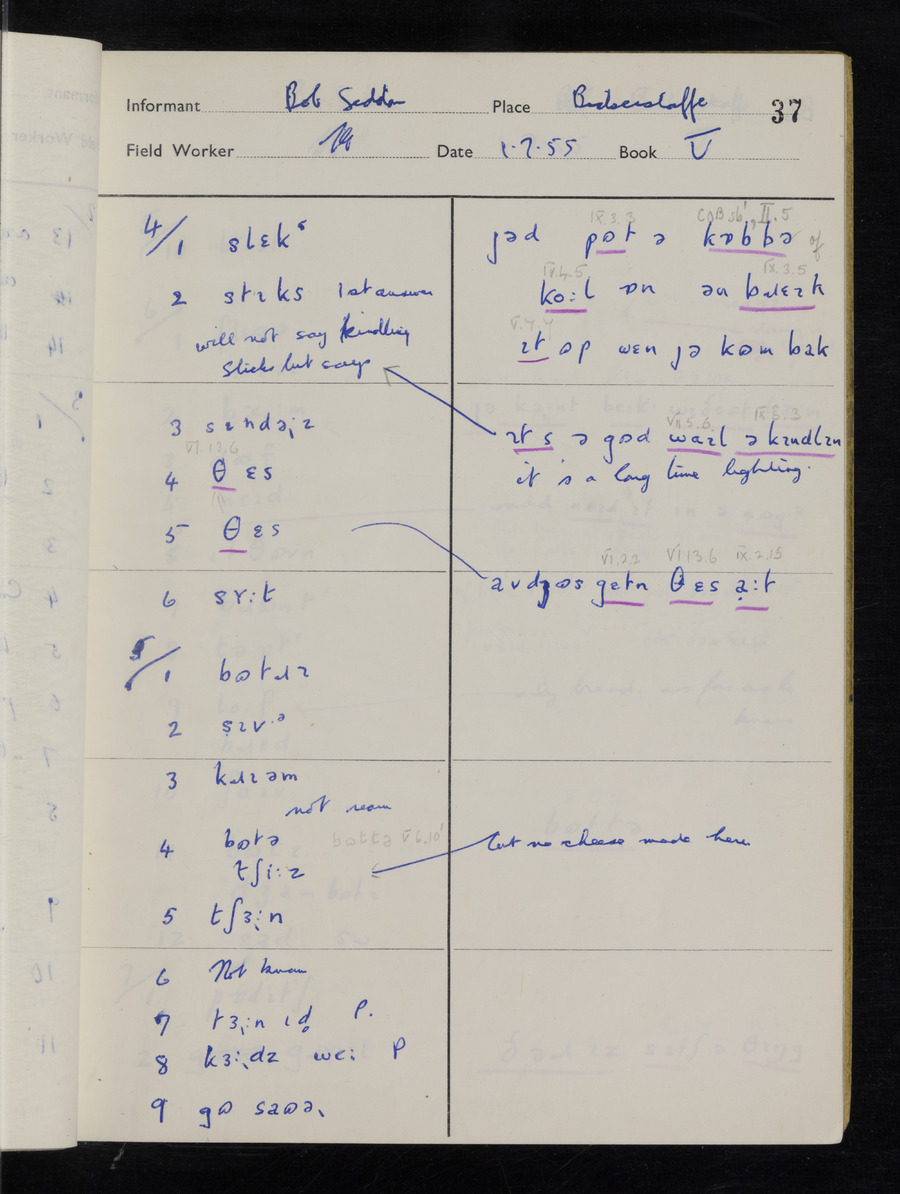 Informant Bob Seddon Place Bickerstaffe 37
Field Worker Date 1.7.55 Book V
4/1 slɛkˢ
2 stɪks 1st answer
will not say kindling
sticks but says
3 sɪndəɹz
VI.13.6
4 θ ɛs
5 θ ɛs
6 sʏ:t
5/1 bɷtɹɪ
2 sɪvᵊ
3 kɹɪəm
not ream
4 bɷtə bɷttə V6.10'
tʃi:z
5 tʃɜ:n
6 Not known
7 tɜ:n ɪd P.
8 kɜ:dz wei P
9 gɷ saɷə
IX 3.3 COB sb', II.5
jəd pɷt ə kɒbbə of
IV.4.5 IX.3.5
kɔ:l ɒn ən bɹɛɪk
V.4.4
ɪt ɷp wɛn jə kɷm bak
VII.5.6. IX.3.3
ɪt s ə gɷd waɪl ə kɪndlɪn
it 's a long time lighting.
VI.2.2 VI 13.6 IX.2.15
avdʒɷs gɛtn θɛs a:t
but no cheese made here